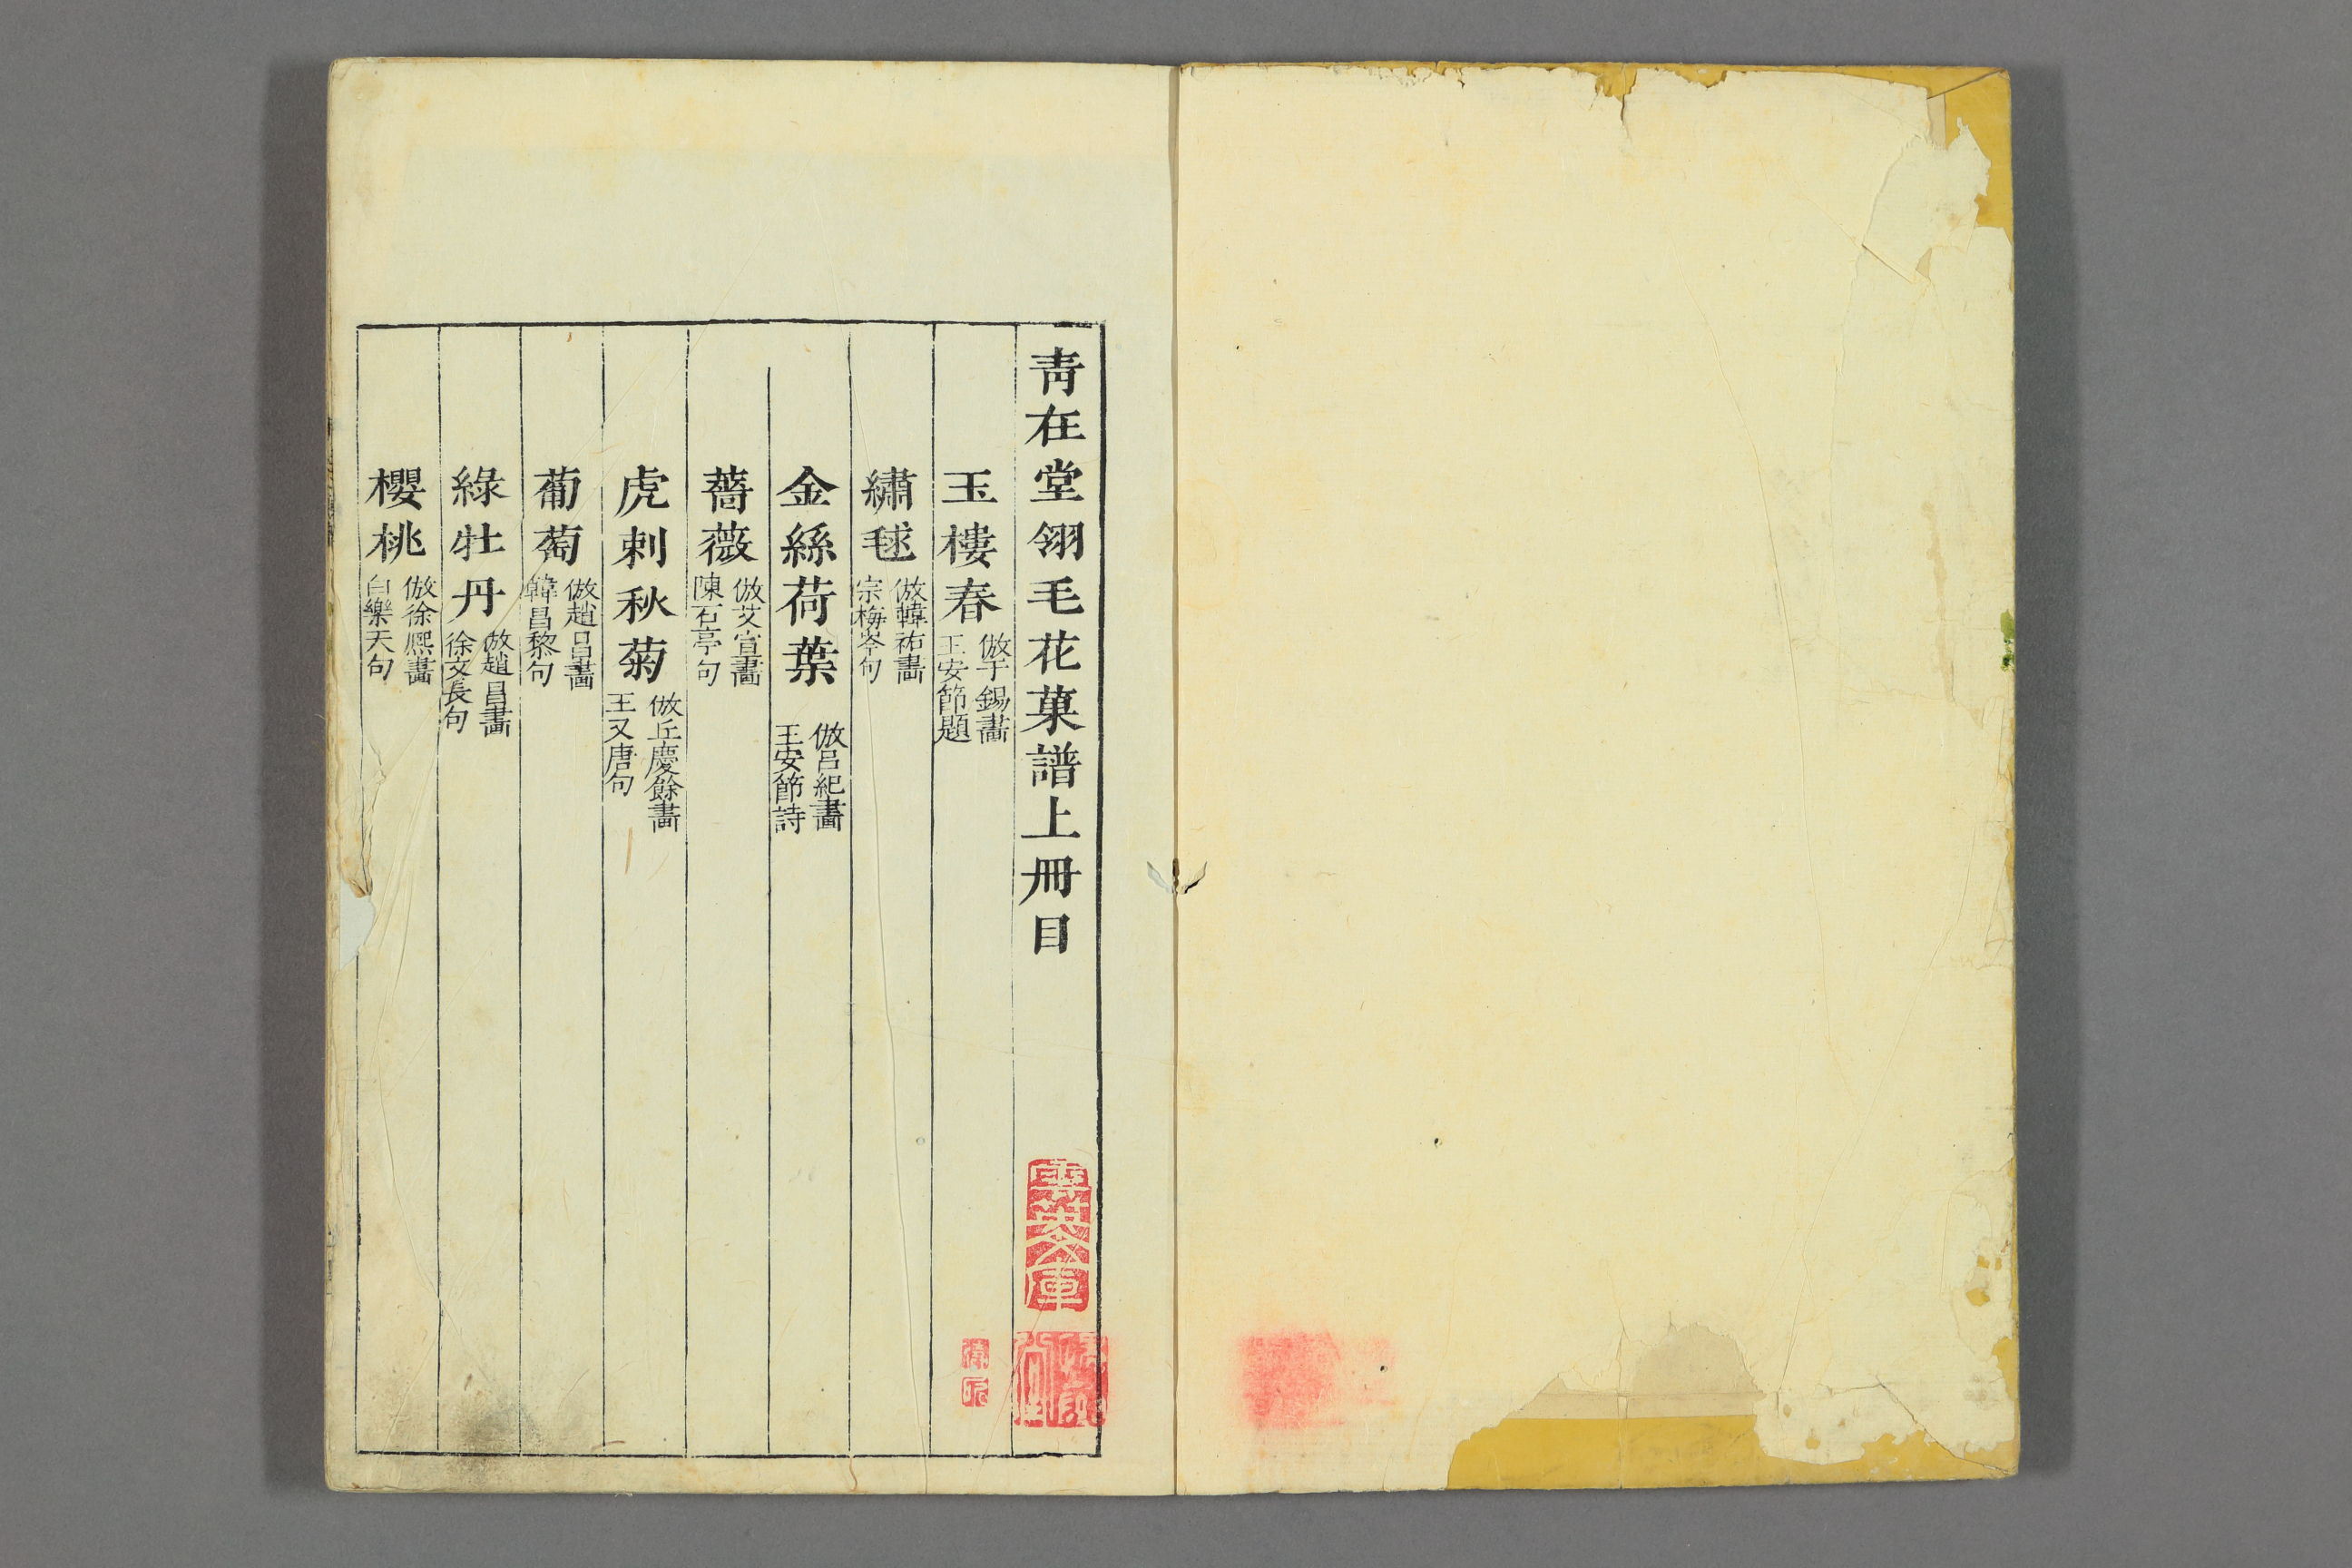 靑在堂翎毛花菓譜上冊目
玉樓春
倣于錫畵
王安節題
繡毬
倣韓祐畵
宗梅岑句
金絲荷葉
倣呂紀畵
王安節詩
薔薇
倣艾宣畵
陳石亭句
虎刺秋菊
倣丘慶餘畵
王又唐句
葡萄
倣趙昌畵
韓昌黎句
綠牡丹
倣趙昌畵
徐文長句
櫻桃
倣徐熈畵
白樂天句
雲英文庫